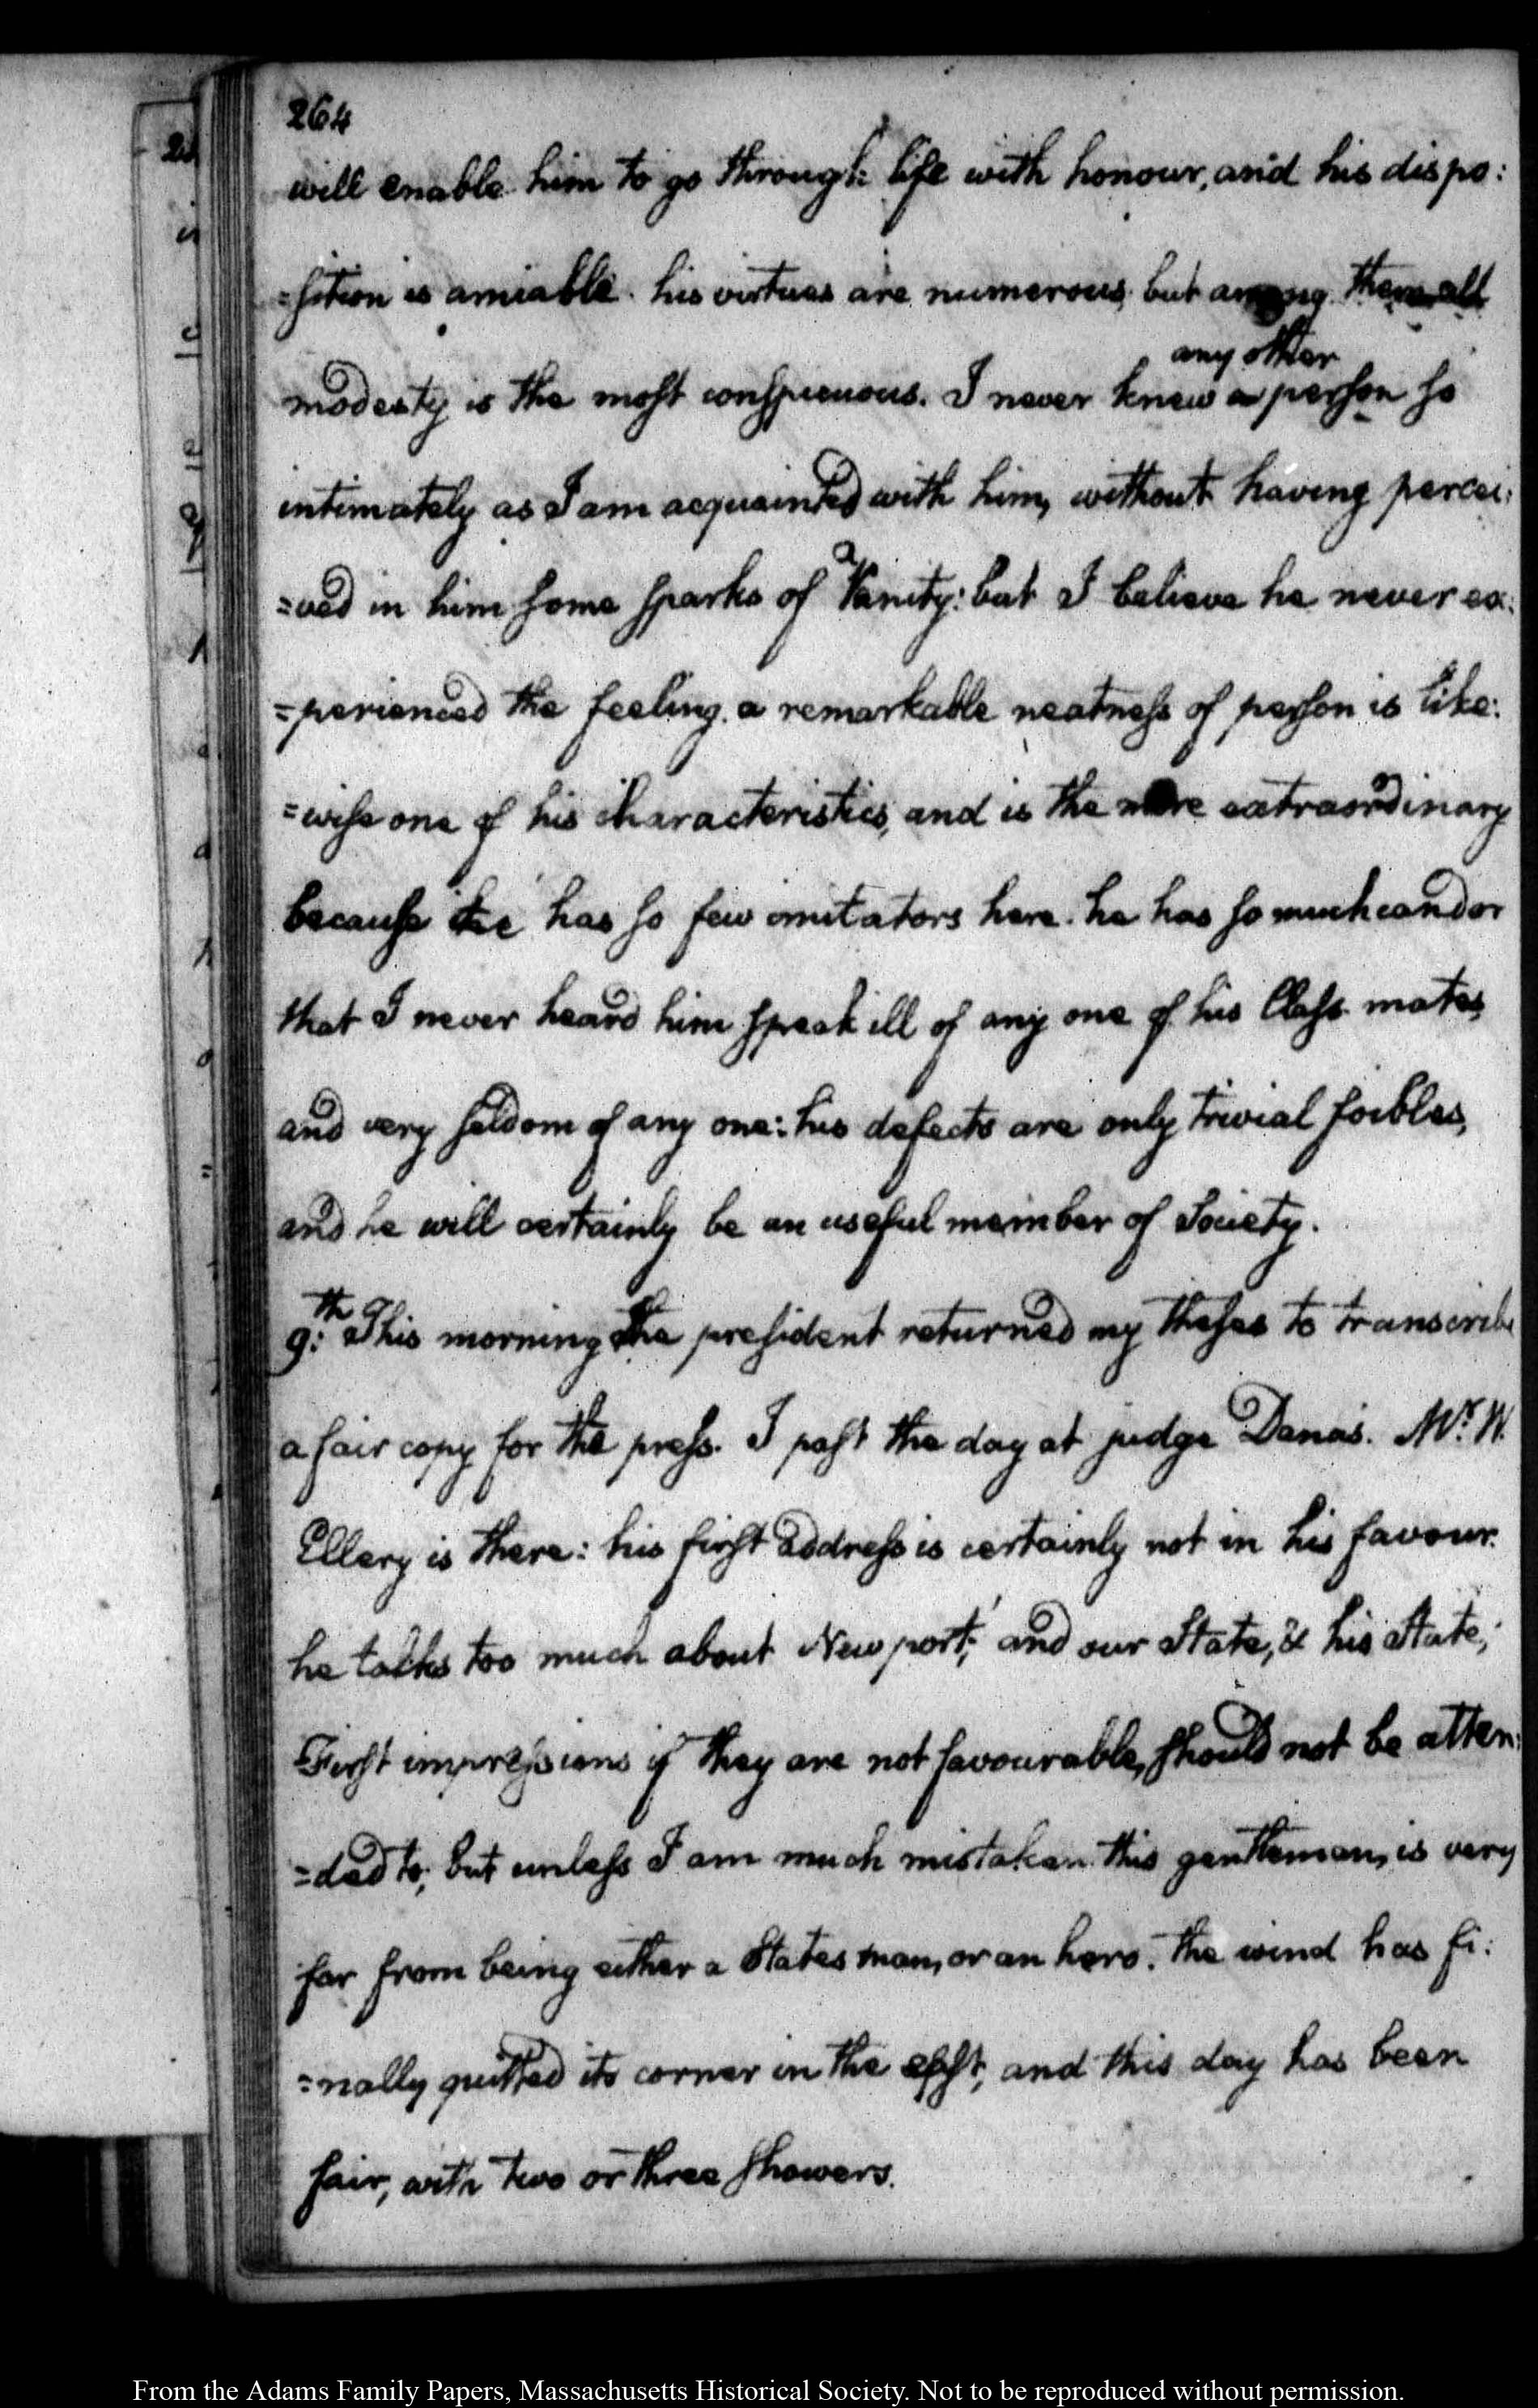 264
will enable him to go through life with honour, and his dispo:
=sition is amiable. his virtues are numerous, but among them all
any other
modesty is the most conspicuous. I never knew a person so
intimately as I am acquainted with him, without having percei:
=ved in him some sparks of Vanity: but I believe he never ex:
=perienced the feeling. a remarkable neatness of person is like:
=wise one of his characteristics, and is the more extraordinary
because he has so few imitators here. he has so much candor
that I never heard him speak ill of any one of his Class mates,
and very seldom of any one: his defects are only trivial foibles,
and he will certainly be an useful member of Society.
9:th This morning the president returned my theses to transcribe
a fair copy for the press. I past the day at judge Dana's. Mr. W.
Ellery is there: his first address is certainly not in his favour.
he talks too much about Newport, and our State, & his State;
First impressions if they are not favourable, should not be atten:
=ded to; but unless I am much mistaken this gentleman, is very
far from being either a States man, or an hero. The wind has fi:
=nally quitted its corner in the east, and this day has been
fair, with two or three showers.
From the Adams Family Papers, Massachusetts Historical Society. Not to be reproduced without permission.